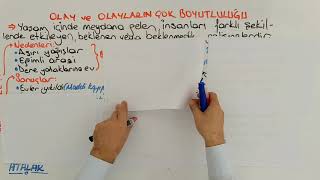 OLAY ve OLAYLARIN ÇOK BOYUTLULUĞU
→ Yaşam içinde meydana gelen, insanları farklı şekil-
lerde etkileyen, beklenen veya beklenmedik
Nedenleri
→ Aşırı yağışlar
→ Eğimli arazi
→ Dere yataklarına ev
Sonuçlar
→ Evler yıkıldı
ATALAK